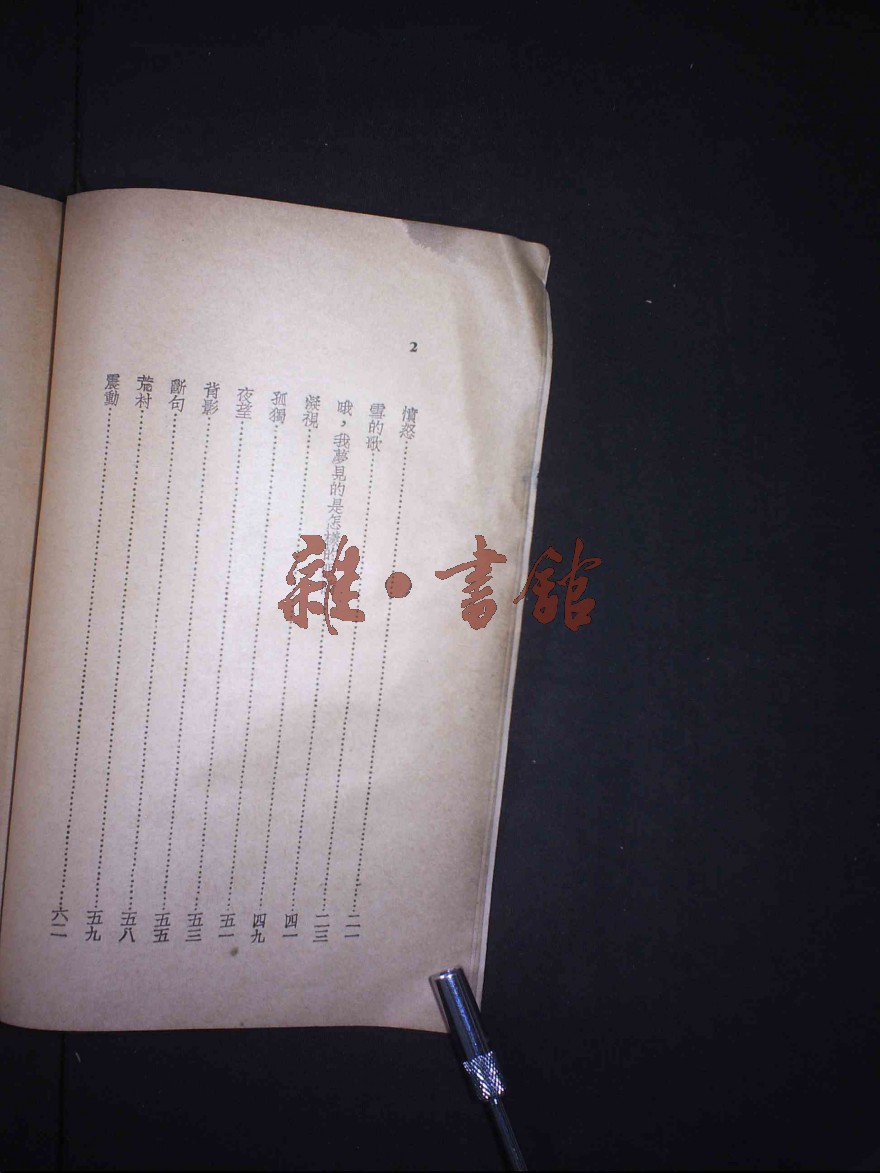 2
憤怒……二一
雪的歌……二三
哦，我夢見的是怎樣的……四一
凝視……四九
孤獨……五一
夜……五三
背影……五五
斷句……五八
荒村……五九
震動……六二
雜·書館